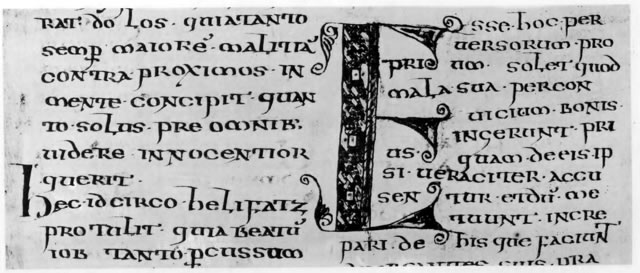 rat· dolos· quia tanto
semp̄ maiorē· malitiā
contra proximos· in
mente· concipit· quan
to solus· pre omnib·
uidere innocentior
querit·
hec· idcirco· helifatz
protulit· quia beatū
iob tanto· pcussum
Esse· hoc· per
uersorum· pro
prium· solet quod
mala sua· per con
uicium· bonis·
ingerunt· pri
us· quam· de eis· ip
si· ueraciter· accu
sentur· et dū· me
tuunt· incre
pari· de his que faciunt